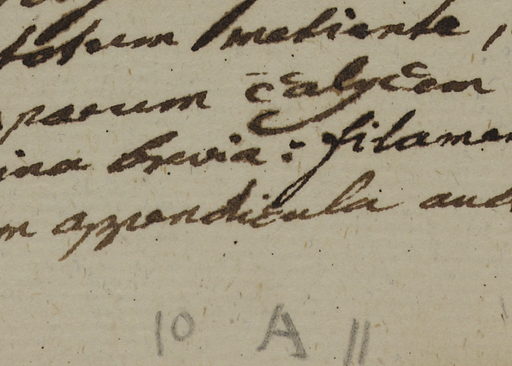 totum metiente,
parum calycem
ina brevia: filamen
m appendicula auc
10 A 11